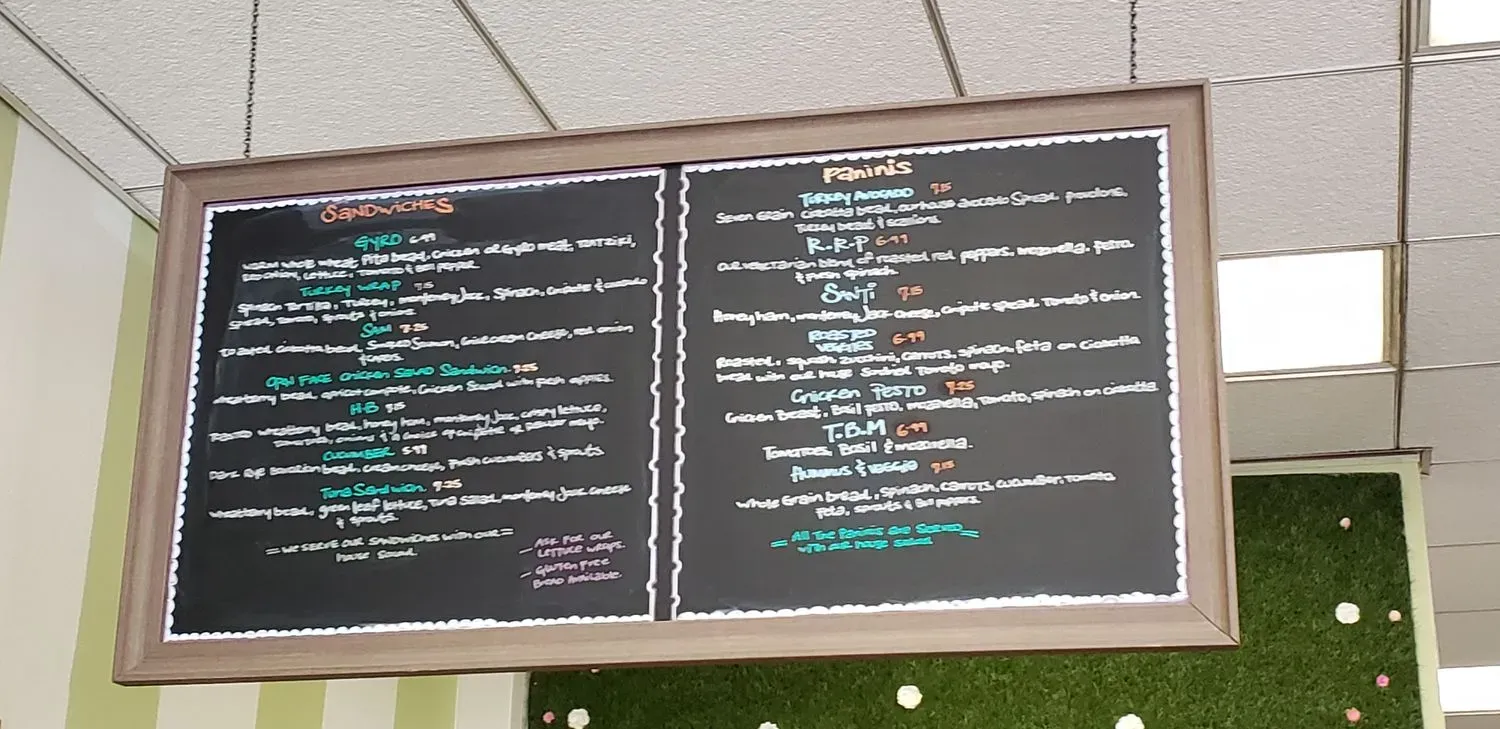 SANDWICHES
GYRO 6.99
warm whole wheat Pita bread, Chicken or Gyro meat, TZATZIKI,
Red onion, Lettuce, Tomato & Bell Pepper.
TURKEY WRAP 7.5
Spinach Tortilla, Turkey, monterey Jack, Spinach, Chipotle & avocado
Spread, Tomato, Sprouts & onions.
SAM 7.25
Toasted ciabatta bread, Smoked Salmon, Cream Cheese, red onion
& capers.
Chicken Salad Sandwich 7.25
wheatberry bread, apricot compote, Chicken Salad with fresh apples.
H.B 7.15
Toasted wheatberry bread, honey ham, monterey Jack, crispy lettuce,
Tomatoes, onions & a choice of chipotle or mayo.
CUCUMBER 5.99
Dark Rye bread, cream cheese, fresh cucumbers & sprouts.
Tuna Sandwich 7.25
wheatberry bread, green leaf lettuce, Tuna Salad, monterey Jack cheese
& sprouts.
= WE SERVE OUR SANDWICHES with our =
house Salad.
- ASK FOR OUR
LETTUCE WRAPS.
- GLUTEN FREE
Bread Available.
Paninis
TURKEY AVOCADO 7.15
Seven Grain Ciabatta bread, our house avocado Spread, provolone,
Turkey breast &
R.R.P 6.99
OUR VEGETARIAN blend of roasted red peppers, mozzarella, pesto
& Fresh spinach.
SANTI 7.15
Honey ham, monterrey Jack cheese, chipotle spread, Tomato & onion.
ROASTED
VEGGIES 6.99
Roasted, squash, zucchini, carrots, spinach, feta on ciabatta
bread with our house Tomato mayo.
Chicken PESTO 7.25
Chicken Breast, Basil pesto, mozzarella, Tomato, spinach on ciabatta
T.B.M 6.99
Tomatoes, Basil & mozzarella.
HUMMUS & VEGGIE 7.15
Whole Grain bread, spinach, carrots, cucumber, tomato
Feta, sprouts & Bell peppers.
= All The Paninis are Served =
with our house salad.